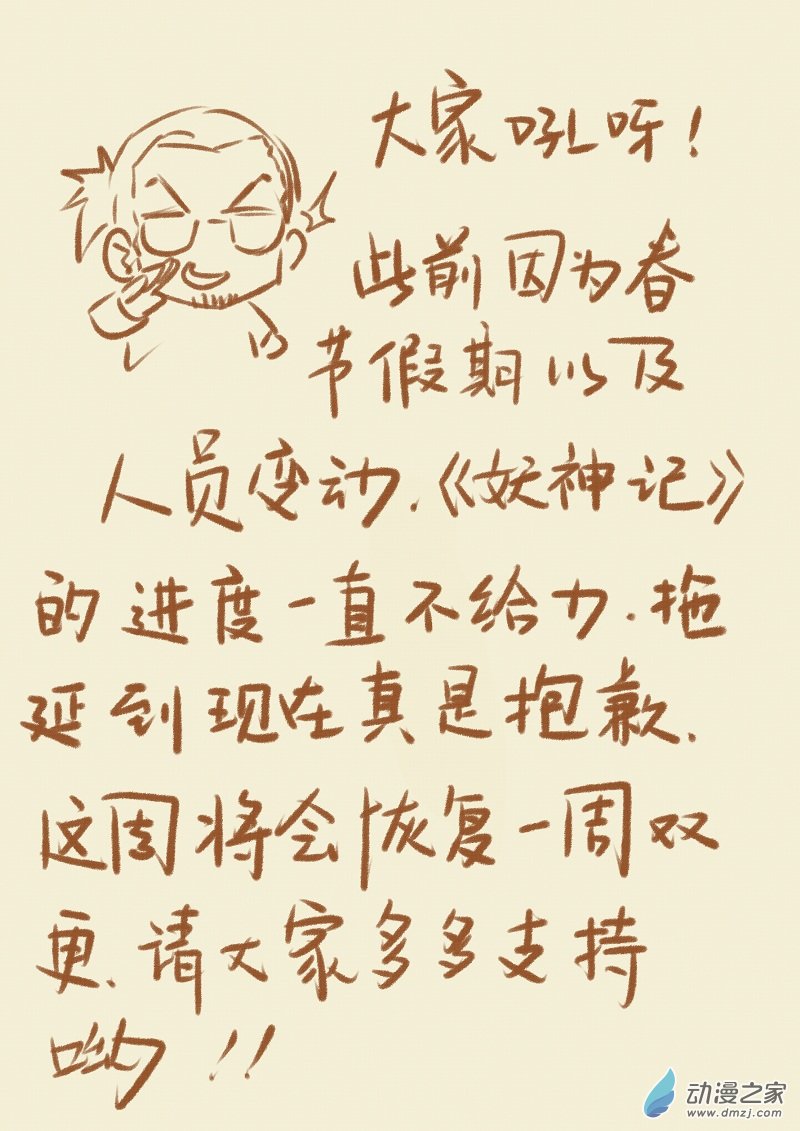 大家吼呀！
此前因为春
节假期以及
人员变动.《妖神记》
的进度一直不给力.拖
延到现在真是抱歉.
这周将会恢复一周双
更.请大家多多支持
呦!!
动漫之家
www.dmzj.com